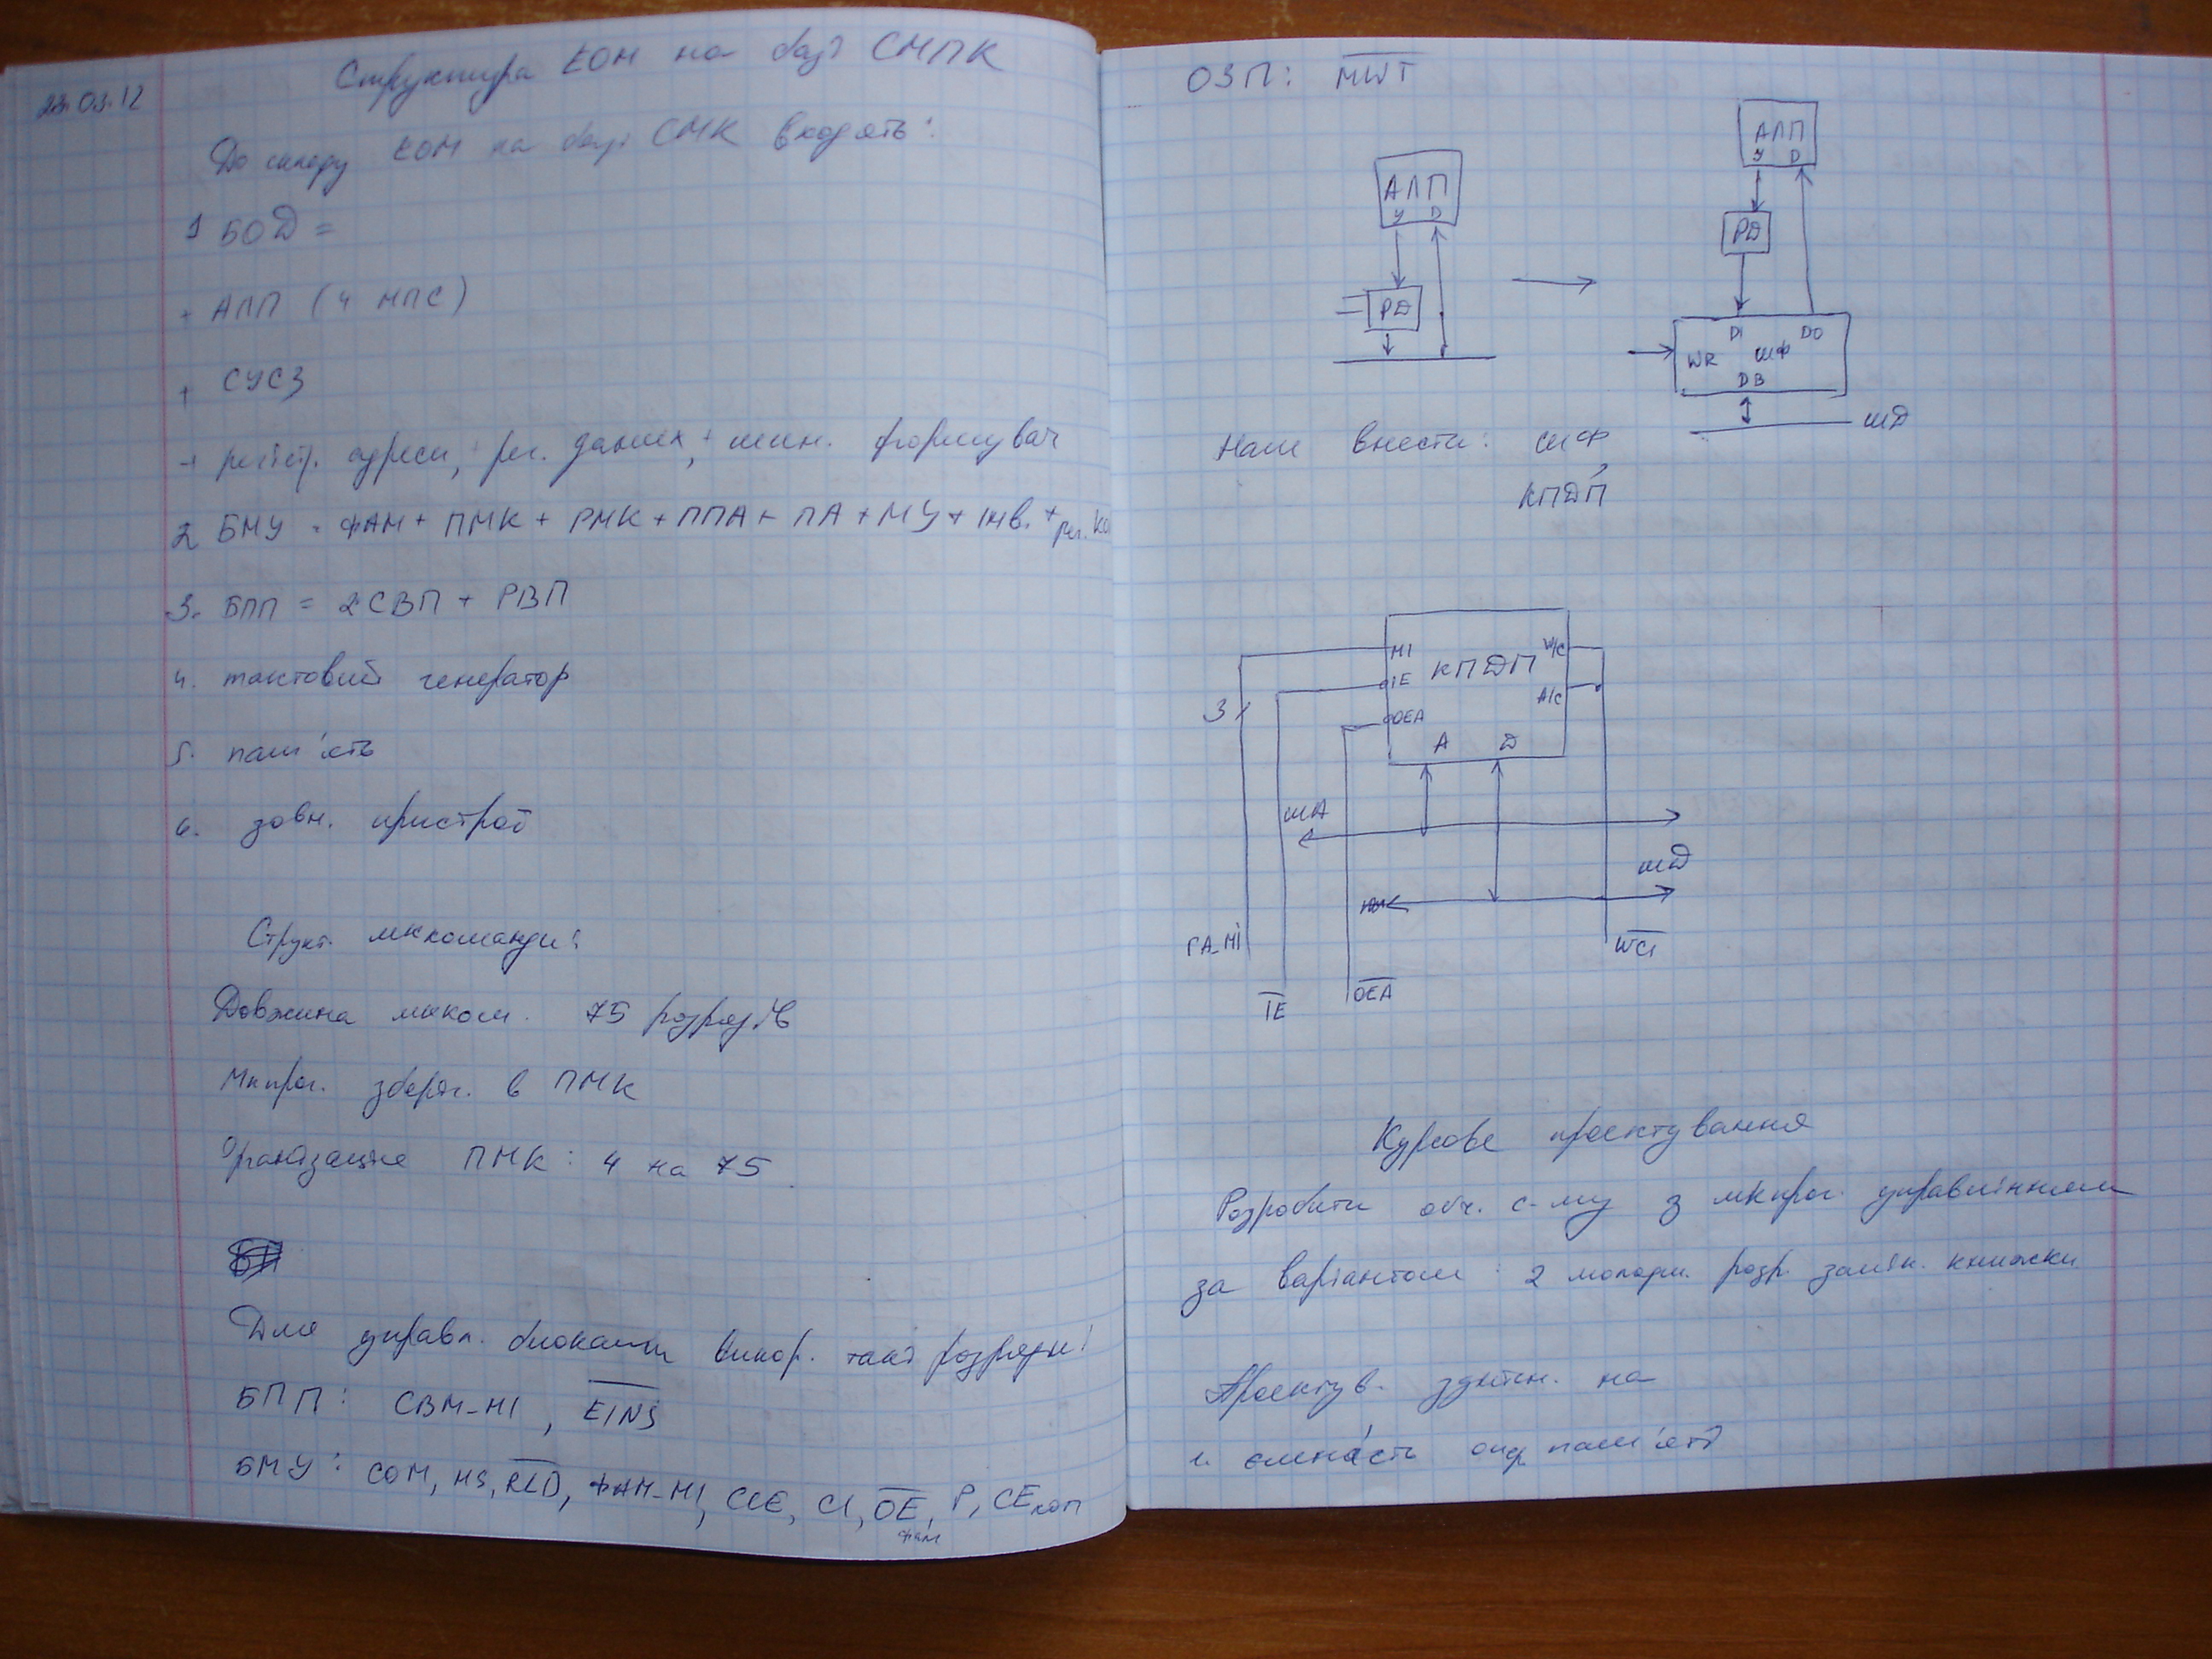 23.03.12
Структура ЕОМ на базі СМПК
До складу ЕОМ на базі СМК входять:
1 БОД =
+ АЛП (4 МПС)
+ СУСЗ
+ регістр. адреси, + рег. даних, + шин. формувач
2 БМУ = ФАМ + ПМК + РМК + ППА + ПА + МУ + інв. + рег. ко
3. БПП = 2 СВП + РВП
4. тактовий генератор
5. пам'ять
6. зовн. пристрої
Структ. мккоманди:
Довжина мкком. 75 розрядів
Мкпрог. зберіг. в ПМК
Організація ПМК: 4 на 75.
Для управл. блоками викор. такі розряди:
БПП: СВМ-НІ, EINS
БМУ: COM, MS, RLD, ФАМ-НІ, CCE, CI, OE, P, CE коп
фам
ОЗП: MWT
АЛП
У D
РД
АЛП
У D
РД
DI DO
WR шФ
DB
шД
Нам внести: шФ,
КПДП
НІ W/C
КПДП
IE
A/C
OEA
3
A D
шА
шД
ГА-НІ
WCI
IE
OEA
Курсове проектування
Розробити обч. с-му з мкпрог. управлінням
за варіантом: 2 молодш. розр. залік. книжки
Проектув. здійсн. на
1. ємність опер пам'яті